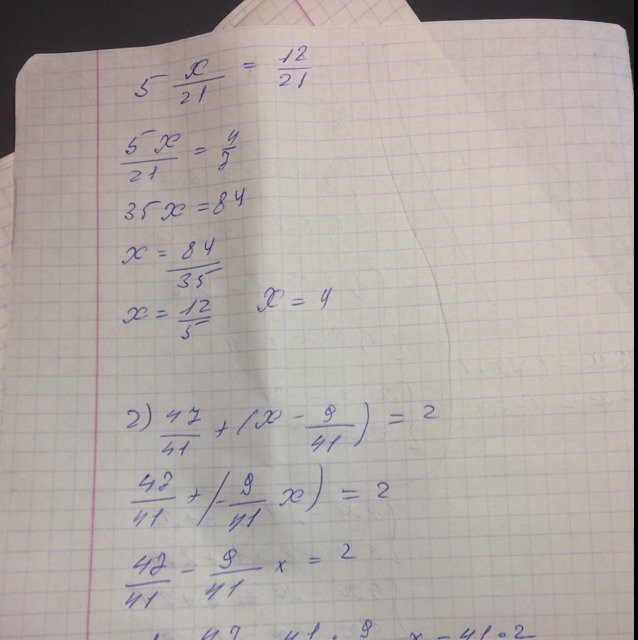 5 x/21 = 12/21
5x/21 = 4/7
35x = 84
x = 84/35
x = 12/5   x = 4
2) 47/41 + (x - 9/41) = 2
47/41 + (-9/41 x) = 2
47/41 - 9/41 x = 2